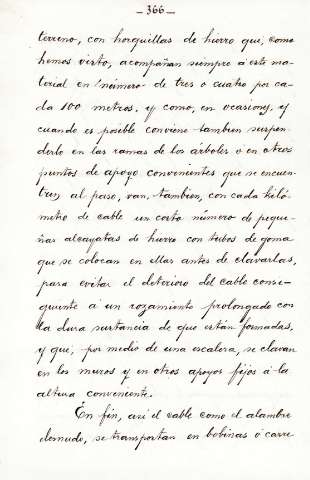 - 366 -
terreno, con horquillas de hierro que, como
hemos visto, acompañan siempre á este ma-
terial en número de tres o cuatro por ca-
da 100 metros, y como, en ocasiones, y
cuando es posible conviene tambien suspen-
derlo en las ramas de los árboles o en otros
puntos de apoyo convenientes que se encuen-
tren al paso, van, tambien, con cada kiló-
metro de cable un corto número de peque-
ñas alcayatas de hierro con tubos de goma
que se colocan en ellas antes de clavarlas,
para evitar el deterioro del cable conse-
quente á un rozamiento prolongado con
la dura sustancia de que están formadas,
y que, por medio de una escalera, se clavan
en los muros y en otros apoyos fijos á la
altura conveniente.
En fin, asi el cable como el alambre
desnudo, se transportan en bobinas ó carre-